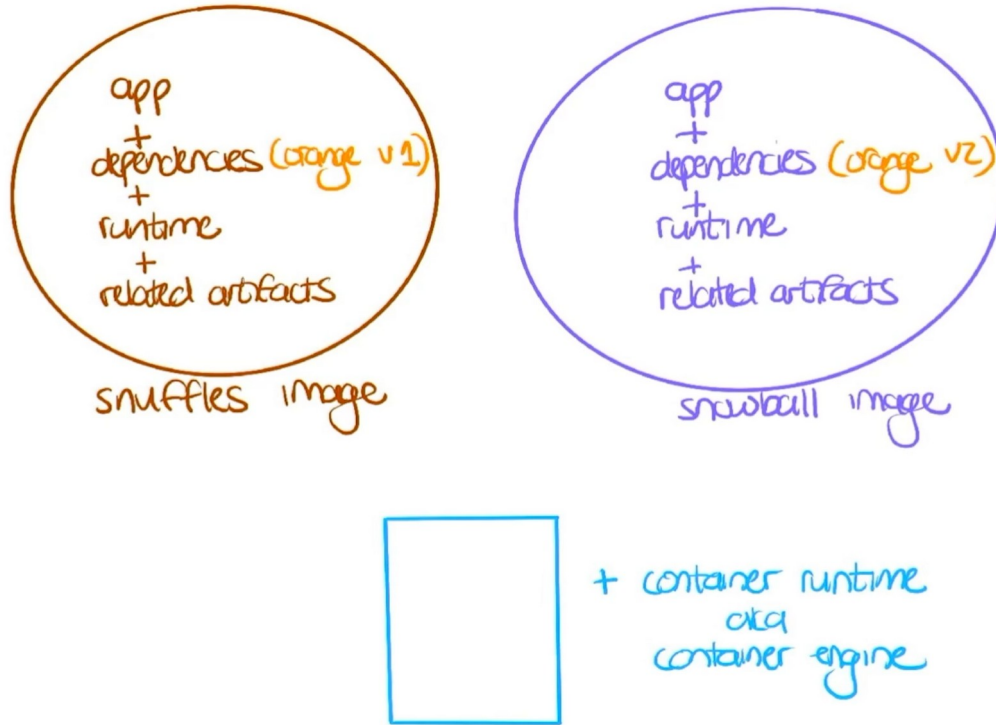 app
+
dependencies (orange v1)
+
runtime
+
related artifacts
snuffles image
app
+
dependencies (orange v2)
+
runtime
+
related artifacts
snowball image
+ container runtime
aka
container engine